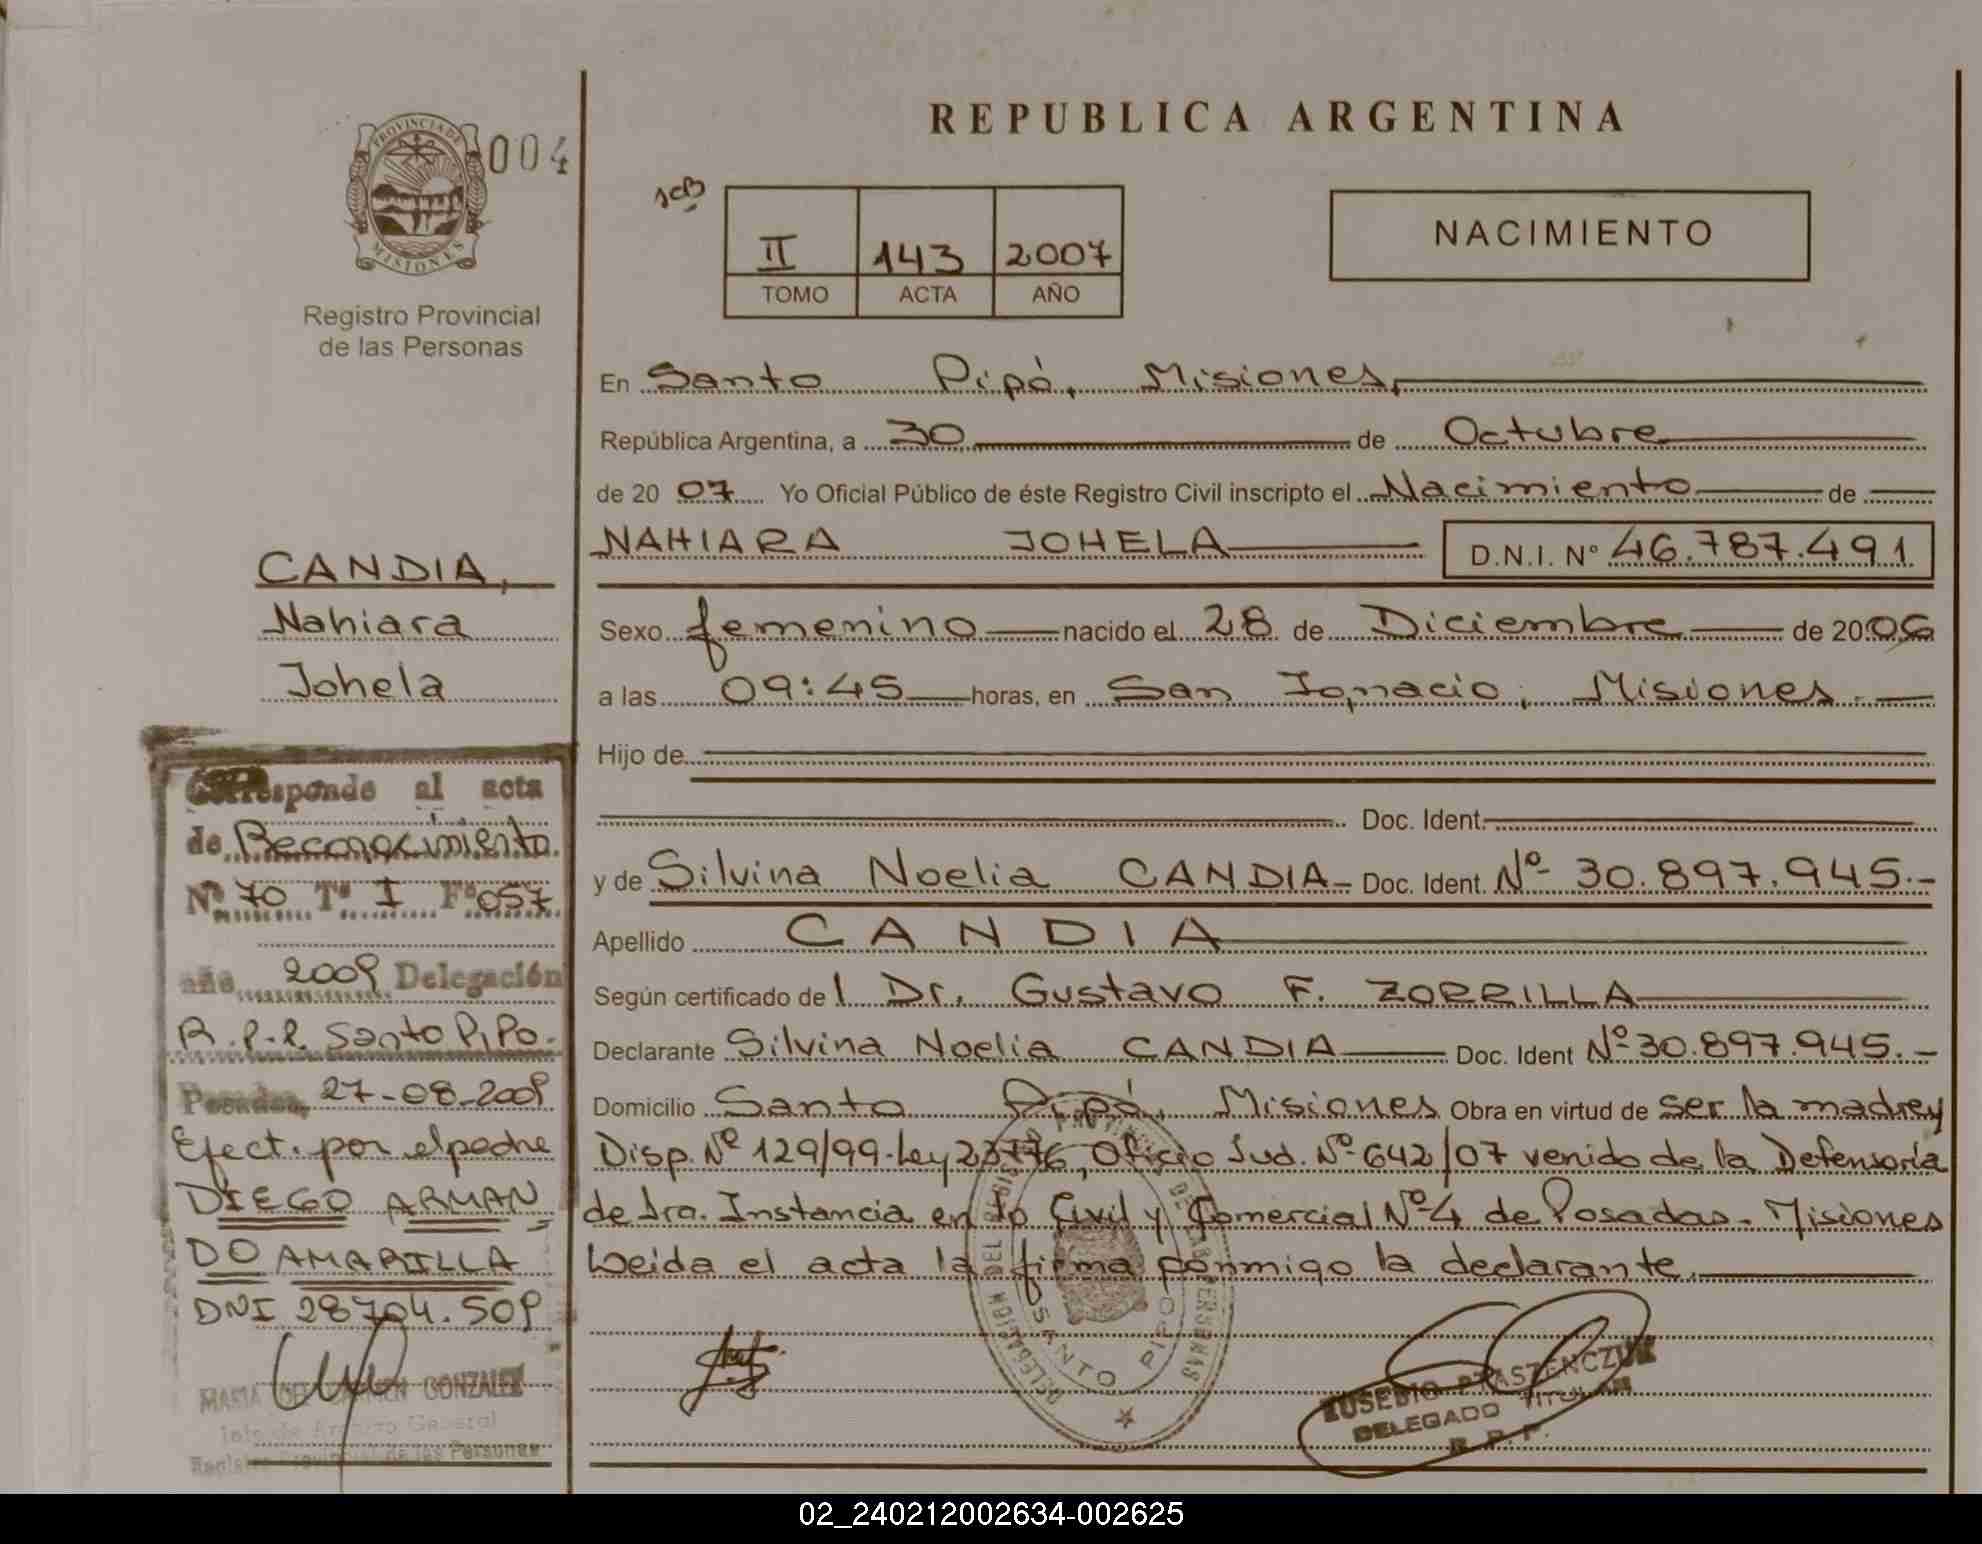 PROVINCIA DE
MISIONES
004
Registro Provincial
de las Personas
CANDIA,
Nahiara
Johela
Corresponde al acta
de Reconocimiento.
Nº 70 Tº I Fº 057
año 2009 Delegación
R.P.P. Santo Pipo.
Posadas, 27-08-2009
Efect. por el padre
DIEGO ARMAN
DO AMARILLA
DNI 28704.509
MARIA DEL CARMEN GONZALEZ
Jefe de Archivo General
Registro Provincial de las Personas
REPUBLICA ARGENTINA
II 143 2007
TOMO ACTA AÑO
NACIMIENTO
En Santo Pipó, Misiones,
República Argentina, a 30 de Octubre
de 20 07 Yo Oficial Público de éste Registro Civil inscripto el Nacimiento de
NAHIARA JOHELA D.N.I. Nº 46.787.491
Sexo femenino nacido el 28 de Diciembre de 2006
a las 09:45 horas, en San Ignacio, Misiones.
Hijo de
Doc. Ident.
y de Silvina Noelia CANDIA Doc. Ident. Nº 30.897.945.-
Apellido CANDIA
Según certificado de l Dr. Gustavo F. ZORRILLA
Declarante Silvina Noelia CANDIA Doc. Ident Nº 30.897.945.-
Domicilio Santo Pipó, Misiones Obra en virtud de ser la madre y
Disp. Nº 129/99-Ley 23776, Oficio Jud. Nº 642/07 venido de la Defensoría
de 1ra. Instancia en lo Civil y Comercial Nº 4 de Posadas - Misiones
Leida el acta la firma conmigo la declarante.
DELEGACION DEL REGISTRO PROVINCIAL DE LAS PERSONAS
SANTO PIPO
EUSEBIO PTASZENCZUK
DELEGADO TITULAR
R.P.P.
02_240212002634-002625